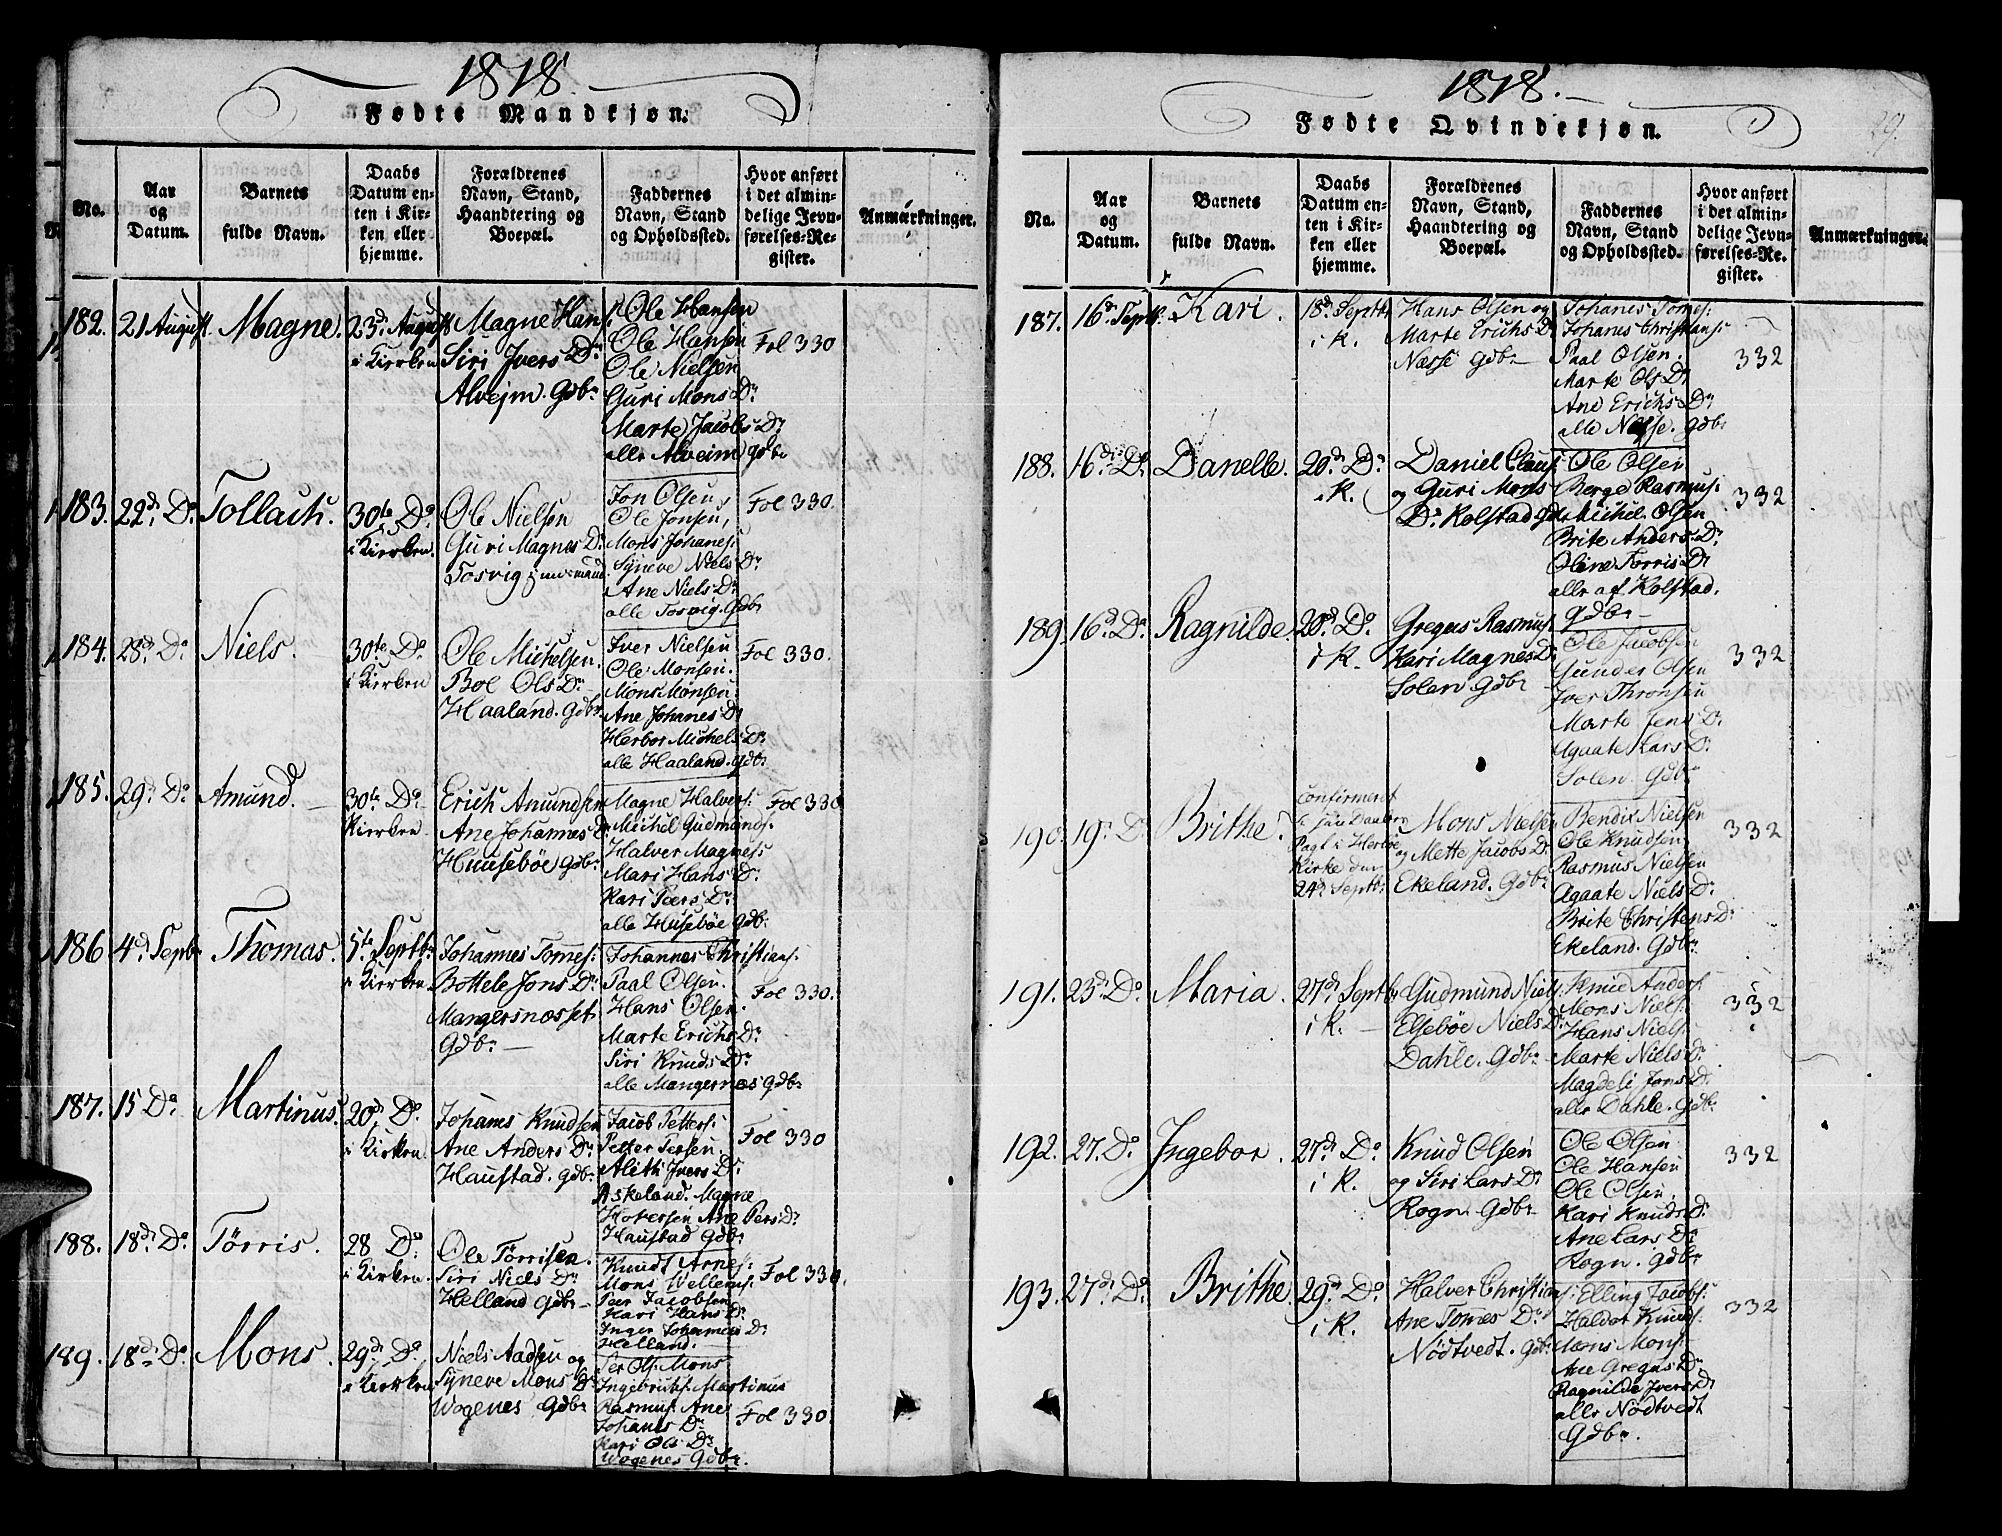 1818.
Fødte Mandkjøn.
No.
Aar
og
Datum.
Barnets
fulde Navn.
Daabs
Datum en-
ten i Kir-
ken eller
hjemme.
Forældrenes
Navn, Stand,
Haandtering og
Boepæl.
Faddernes
Navn, Stand
og Opholdssted.
Hvor anført
i det almin-
delige Jevn-
førelses-Re-
gister.
Anmærkninger.
182. 21 August. Magne. 23d August
i Kierken
Magne Hans:
Siri Ivers Dr
Alvejm. Gdbr
Ole Hansen
Ole Hansen
Ole Nielsen
Guri Mons Dr
Marte Jacobs Dr
alle Alveim gdbr
Fol 330
183. 22d Do Tollach. 30te Do
i Kierken
Ole Nielsen
Guri Magnes D.
Tosvig
Jon Olsen,
Ole Jonsen,
Mons Johanes:
Syneve Niels Dr
Ane Niels Dr
alle Tosvig. Gdbr
Fol 330.
184. 28d Do Niels. 30te Do
i Kierken
Ole Michelsen.
Boe Ols Dr
Haaland. gdbr
Iver Nielsen
Ole Monsen
Mons Monsen
Ane Johanes Dr
Herbor Michels Dr
alle Haaland. gdbr
Fol 330.
185. 29d Do Amund. 30te Do
Kierken
Erich Amundsen
Ane Johannes D.
Huusebøe gdbr
Magne Halvers:
Michel Gudmunds:
Halver Magnes:
Mari Hans Dr
Kari Peers Dr
alle Husebøe gdbr
Fol 330
186 4d Sepbr Thomas. 5te Septbr
i Kierken
Johannes Tomes:
Bottele Jons Dr
Mangersnæsset
Gdbr
Johannes Christians:
Paal Olsen.
Hans Olsen.
Marte Erichs Dr
Siri Knuds Dr
alle Mangernæs gdbr
Fol 330.
187. 15 Do Martinus. 20d Do
i Kierken
Johanes Knudsen
Ane Anders Dr
Haustad. gdbr
Jacob Petters:
Petter Persen
Aleth Ivers Dr
Askeland. Magne
Ane Pers Dr
Haustad Gdbr
Fol 330
188. 18d Do Tørris. 28 Do
i Kierken
Ole Tørrisen
Siri Niels Dr
Helland gdbr
Knudt Arnes:
Mons Wellems:
Peer Jacobsen
Kari Hans Dr
Inger Johannes Dr
Helland.
Fol 330.
189. 18d Do Mons. 29d Do
i Kierken
Niels Aadsen og
Syneve Mons Dr
Wogenes Gdbr
Per Ols: Mons
Martinus
Rasmus: Ane
Johanes Dr
Kari Ols Dr
Wogenes Gdbr.
Fol 330.
1818.
29.
Fødte Qvindekjøn.
No.
Aar
og
Datum.
Barnets
fulde Navn.
Daabs
Datum en-
ten i Kir-
ken eller
hjemme.
Forældrenes
Navn, Stand,
Haandtering og
Boepæl.
Faddernes
Navn, Stand
og Opholdssted.
Hvor anført
i det almin-
delige Jevn-
førelses-Re-
gister.
Anmærkninger.
187. 16d Septbr. Kari. 18d Septbr
i K.
Hans Olsen og
Marte Erichs D.
Næsse Gdbr
Johanes Tomes:
Johanes Christians:
Paal Olsen.
Marte Ols Dr
Ane Erichs Dr
alle Næsse. gdbr
332
188. 16d Do Danelle. 20d Do
i K.
Daniel Claus:
og Guri Mons
Dr Kolstad Gdbr
Ole Olsen
Børge Rasmus:
Michel Olsen
Brite Anders Dr
Oline Tørris Dr
alle af Kolstad.
gdbr
332
189. 16d Do Ragnilde. 20d Do
i K.
Gregus Rasmus:
Kari Magnes Dr
Solen Gdbr
Ole Jacobsen
Gunder Olsen
Iver Thronsen
Marte Jens Dr
Agaate Lars Dr
Solen. Gdbr
332
190. 19d Do Brithe. Confirmeret
Kirke den
24d Septbr
Mons Nielsen
og Mette Jacobs Dr
Ekeland. Gdbr
Bendix Nielsen
Ole Knudsen
Rasmus Nielsen
Agaate Niels Dr
Brite Christens Dr
Ekeland. Gdbr
332
191. 23d Do Maria. 27d Septbr
i K.
Gudmund Niels:
Elsebøe Niels Dr
Dahle. Gdbr
Anders:
Mons Niels:
Hans Niels:
Marte Niels Dr
Magdeli Jons Dr
alle Dahle. gdbr
332
192. 27. Do Ingebor. 27d Do
i K.
Knud Olsen
og Siri Lars Dr
Rogn. Gdbr
Ole Olsen
Ole Hansen
Ole Olsen.
Kari Knuds Dr
Ane Lars Dr
Rogn. Gdbr
332
193. 27d Do Brithe. 29d Do
i K.
Halver Christians:
Ane Tomes Dr
Nödtvedt. Gdbr
Elling Jacobs:
Haldor Knuds:
Mons Mons:
Ane Gregus Dr
Ragnilde Ivers Dr
alle Nödtvedt
Gdbr.
332